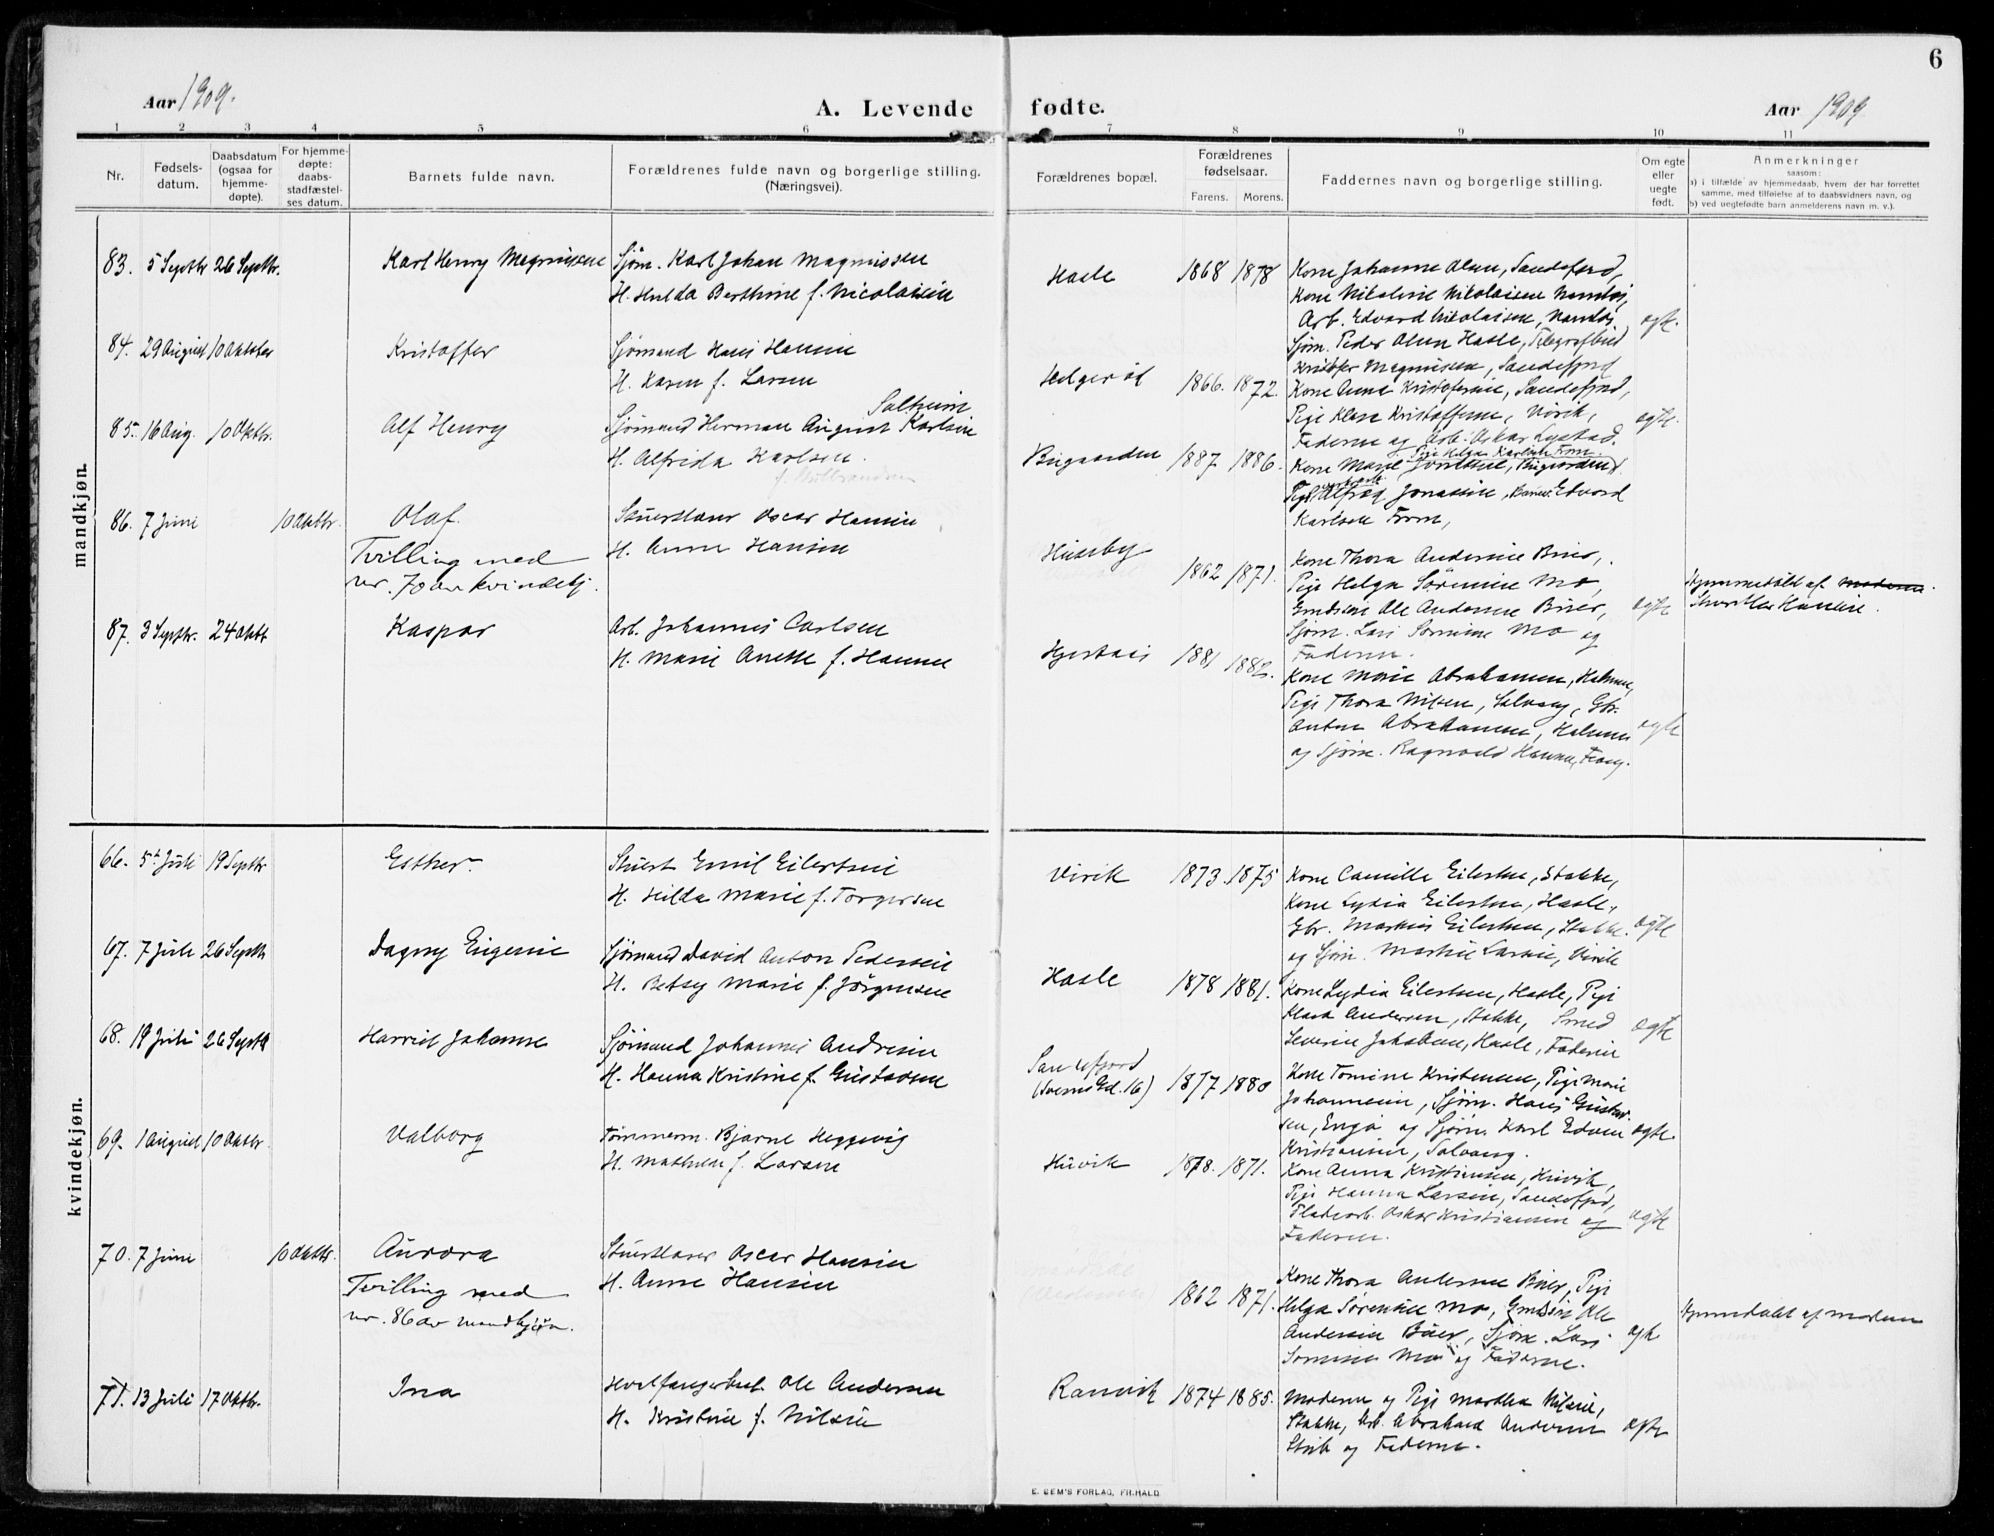 6
Aar 1909.
A. Levende fødte.
Aar 1909.
1 2 3 4 5 6 7 8 9 10 11
Nr.
Fødsels-
datum.
Daabsdatum
(ogsaa for
hjemme-
døpte).
For hjemme-
døpte:
daabs-
stadfæstel-
ses datum.
Barnets fulde navn.
Forældrenes fulde navn og borgerlige stilling.
(Næringsvei).
Forældrenes bopæl.
Forældrenes
fødselsaar.
Farens. Morens.
Faddernes navn og borgerlige stilling.
Om egte
eller
uegte
født.
Anmerkninger
saasom:
a) i tilfælde av hjemmedaab, hvem der har forrettet
samme, med tilføielse af to daabsvidners navn, og
b) ved uegtefødte barn anmelderens navn m. v.).
mandkjøn.
83. 5 Septbr 26 Septbr. Karl Henry Magnussen
Sjøm. Karl Johan Magnussen
H. Hulda Berthine f. Nicolaisen
Hasle 1868 1878
Kone Johanne Olsen, Sandefjord,
Kone Nikoline Nikolaisen
Arb. Edvard Nikolaisen,
Sjøm. Peder Olsen Hasle, Telegrafbud
Kristofer Magnussen, Sandefjord
egte.
84. 29 August 10 Oktober Kristoffer
Sjømand Hans Hansen
H. Karen f. Larsen
Helgerød 1866. 1872.
Kone Anna Kristofersen, Sandefjord,
Pige Klara Kristoffersen, Virik,
Faderen og Arb. Oskar Lystad.
egte.
85. 16 Aug. 10 Oktbr. Alf Henry
Solheim
Sjømand Herman August Karlsen
H. Alfrida Karlsen.
Bugaarden 1887. 1886.
Pige Helga Karlsen Fom.
Kone Marie
Alfred Jonassen, Edvard
Karlsen Fom,
86. 7 Juni 10 Oktbr. Olaf.
Tvilling med
nr. 70 av kvindekj.
Stuerthaver Oscar Hansen
H. Anne Hansen
Huseby
1862 1871.
Kone Thora Andersen Buer,
Pige Helga Sørensen Mo,
Grubsen Ole Andersen Buer,
Sjøm. Lars Sørensen Mo og
Faderen.
egte
Hjemmedøbt af moderen.
Hansen.
87. 3 Septbr. 24 Oktb Kaspar
Arb. Johannes Carlsen
H. Marie Anette f. Hansen
Hjertaas 1881 1882.
Kone Marie Abrahamsen,
Pige Thora Nilsen, Solvang, Gbr.
Anton Abrahamsen,
og Sjøm. Ragnvald Hansen,
egte
kvindekjøn.
66. 5te Juli 19 Septbr Esther.
Stuert Emil Eilertsen
H. Hilda Marie f. Torgersen
Virik 1873. 1875
Kone Camilla Eilertsen, Stakke,
Kone Lydia Eilertsen, Hasle,
Gbr. Markus Eilertsen, Stakke.
og Sjøm. Martin Larsen, Virik
egte
67. 7 Juli 26 Septbr Dagny Eugenie
Sjømand David Anton Pedersen
H. Betsy Marie f. Jörgensen
Hasle 1878 1881.
Kone Lydia Eilertsen, Hasle, Pige
Klara Andersen, Stakke, Smed
Severin Jakobsen, Hasle, Faderen
egte
68. 19 Juli 26 Septb Harriet Johanne
Sjømand Johannes Andresen
H. Hanna Kristine f. Gustavsen
Sandefjord
16) 1877 1880
Kone Tomine Kristensen, Pige Marie
Johannesen, Sjøm. Hans Gustav-
sen, Engø og Sjøm. Karl Edvin
Kristiansen, Solvang.
egte.
69. 1 August 10 Oktbr. Valborg
Tømmerm. Bjarne Heggevig
H. Mathilde f. Larsen
Huvik 1878. 1871.
Kone Anna Kristiansen, Huvik,
Pige Hanna Larsen, Sandefjord,
Oskar Kristiansen og
Faderen.
egte
70. 7 Juni 10 Oktbr. Aurora
Tvilling med
nr. 86 av mandkjøn.
Stuerthaver Oscar Hansen
H. Anne Hansen
1862 1871.
Kone Thora Andersen Buer, Pige
Helga Sørensen Mo, Ole
Andersen Buer, Sjøm. Lars
Sørensen Mo og Faderne.
egte
Hjemmedøbt af moderen
71. 13 Juli 17 Oktbr. Ina
Hvalfangerbest. Ole Andersen
H. Kristine f. Nilsen
Ranvik 1874 1885.
Moderen og Pige Marthea Nilsen,
Stakke, Arb. Abraham Andersen
Stub og Faderne.
egte
E. SEM'S FORLAG, FR.HALD